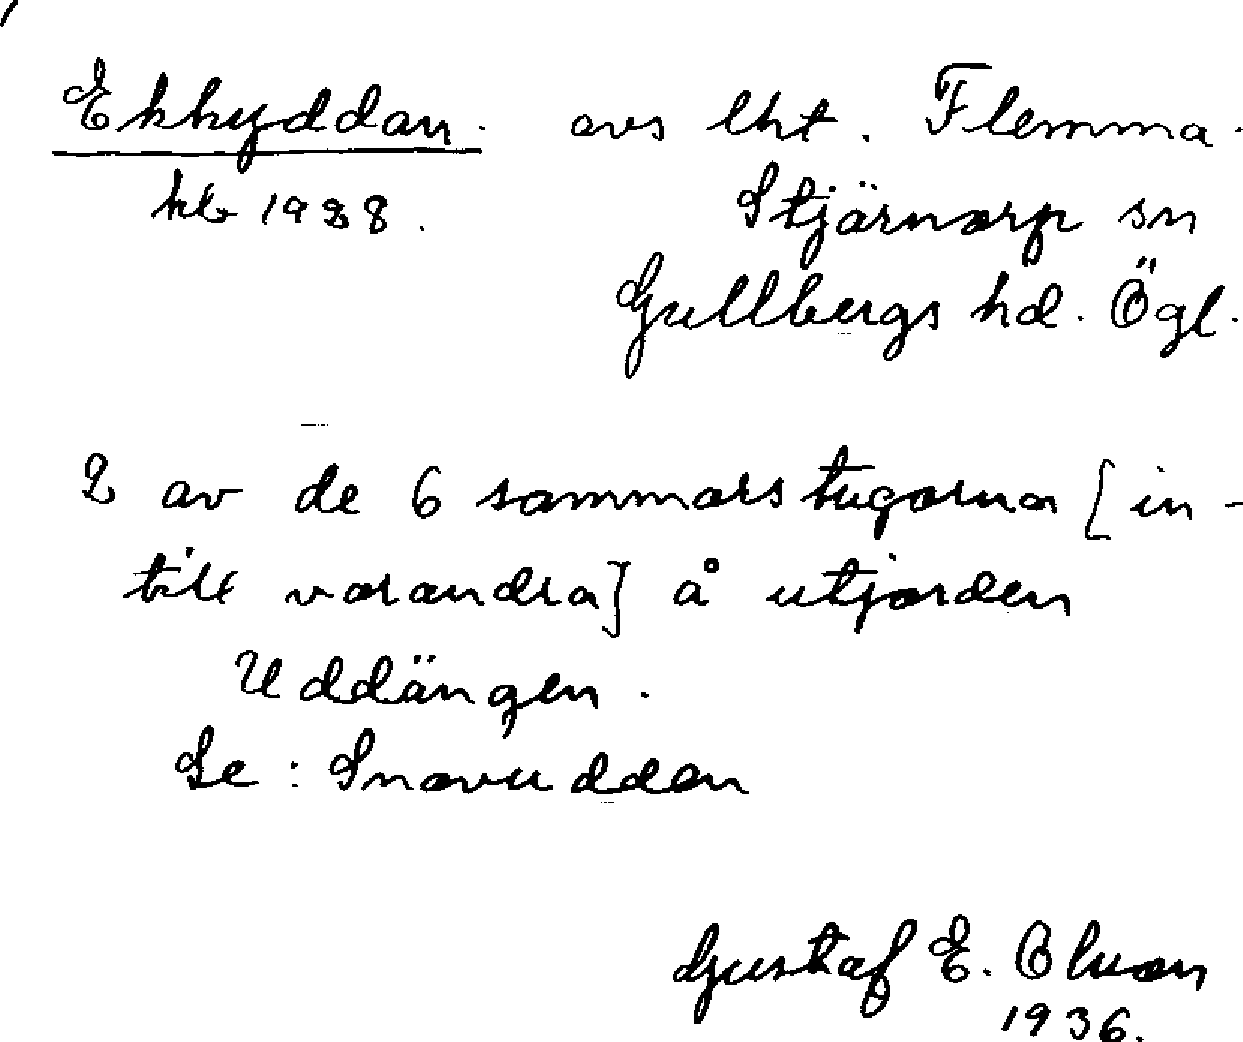 Ekhyddan. avs lht. Flemma.
kb 1928. Stjärnorp sn
Gullbergs hd. Ögl.
2 av de 6 sommarstugorna [in-
till varandra] å utjorden
Uddängen.
Se: Snavudden
Gustaf E. Olson
1936.